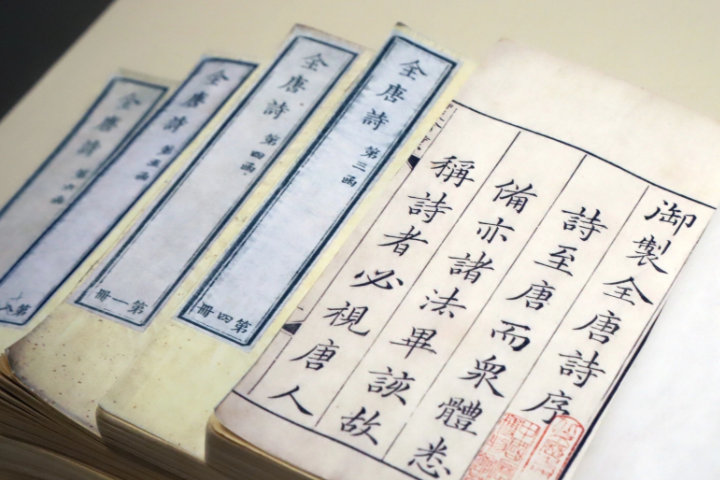 御製全唐詩序
詩至唐而衆體悉
備亦諸法畢該故
稱詩者必視唐人
全唐詩 第三函
第四冊
全唐詩 第四函
第一冊
全唐詩 第五函
全唐詩 第六函
第八